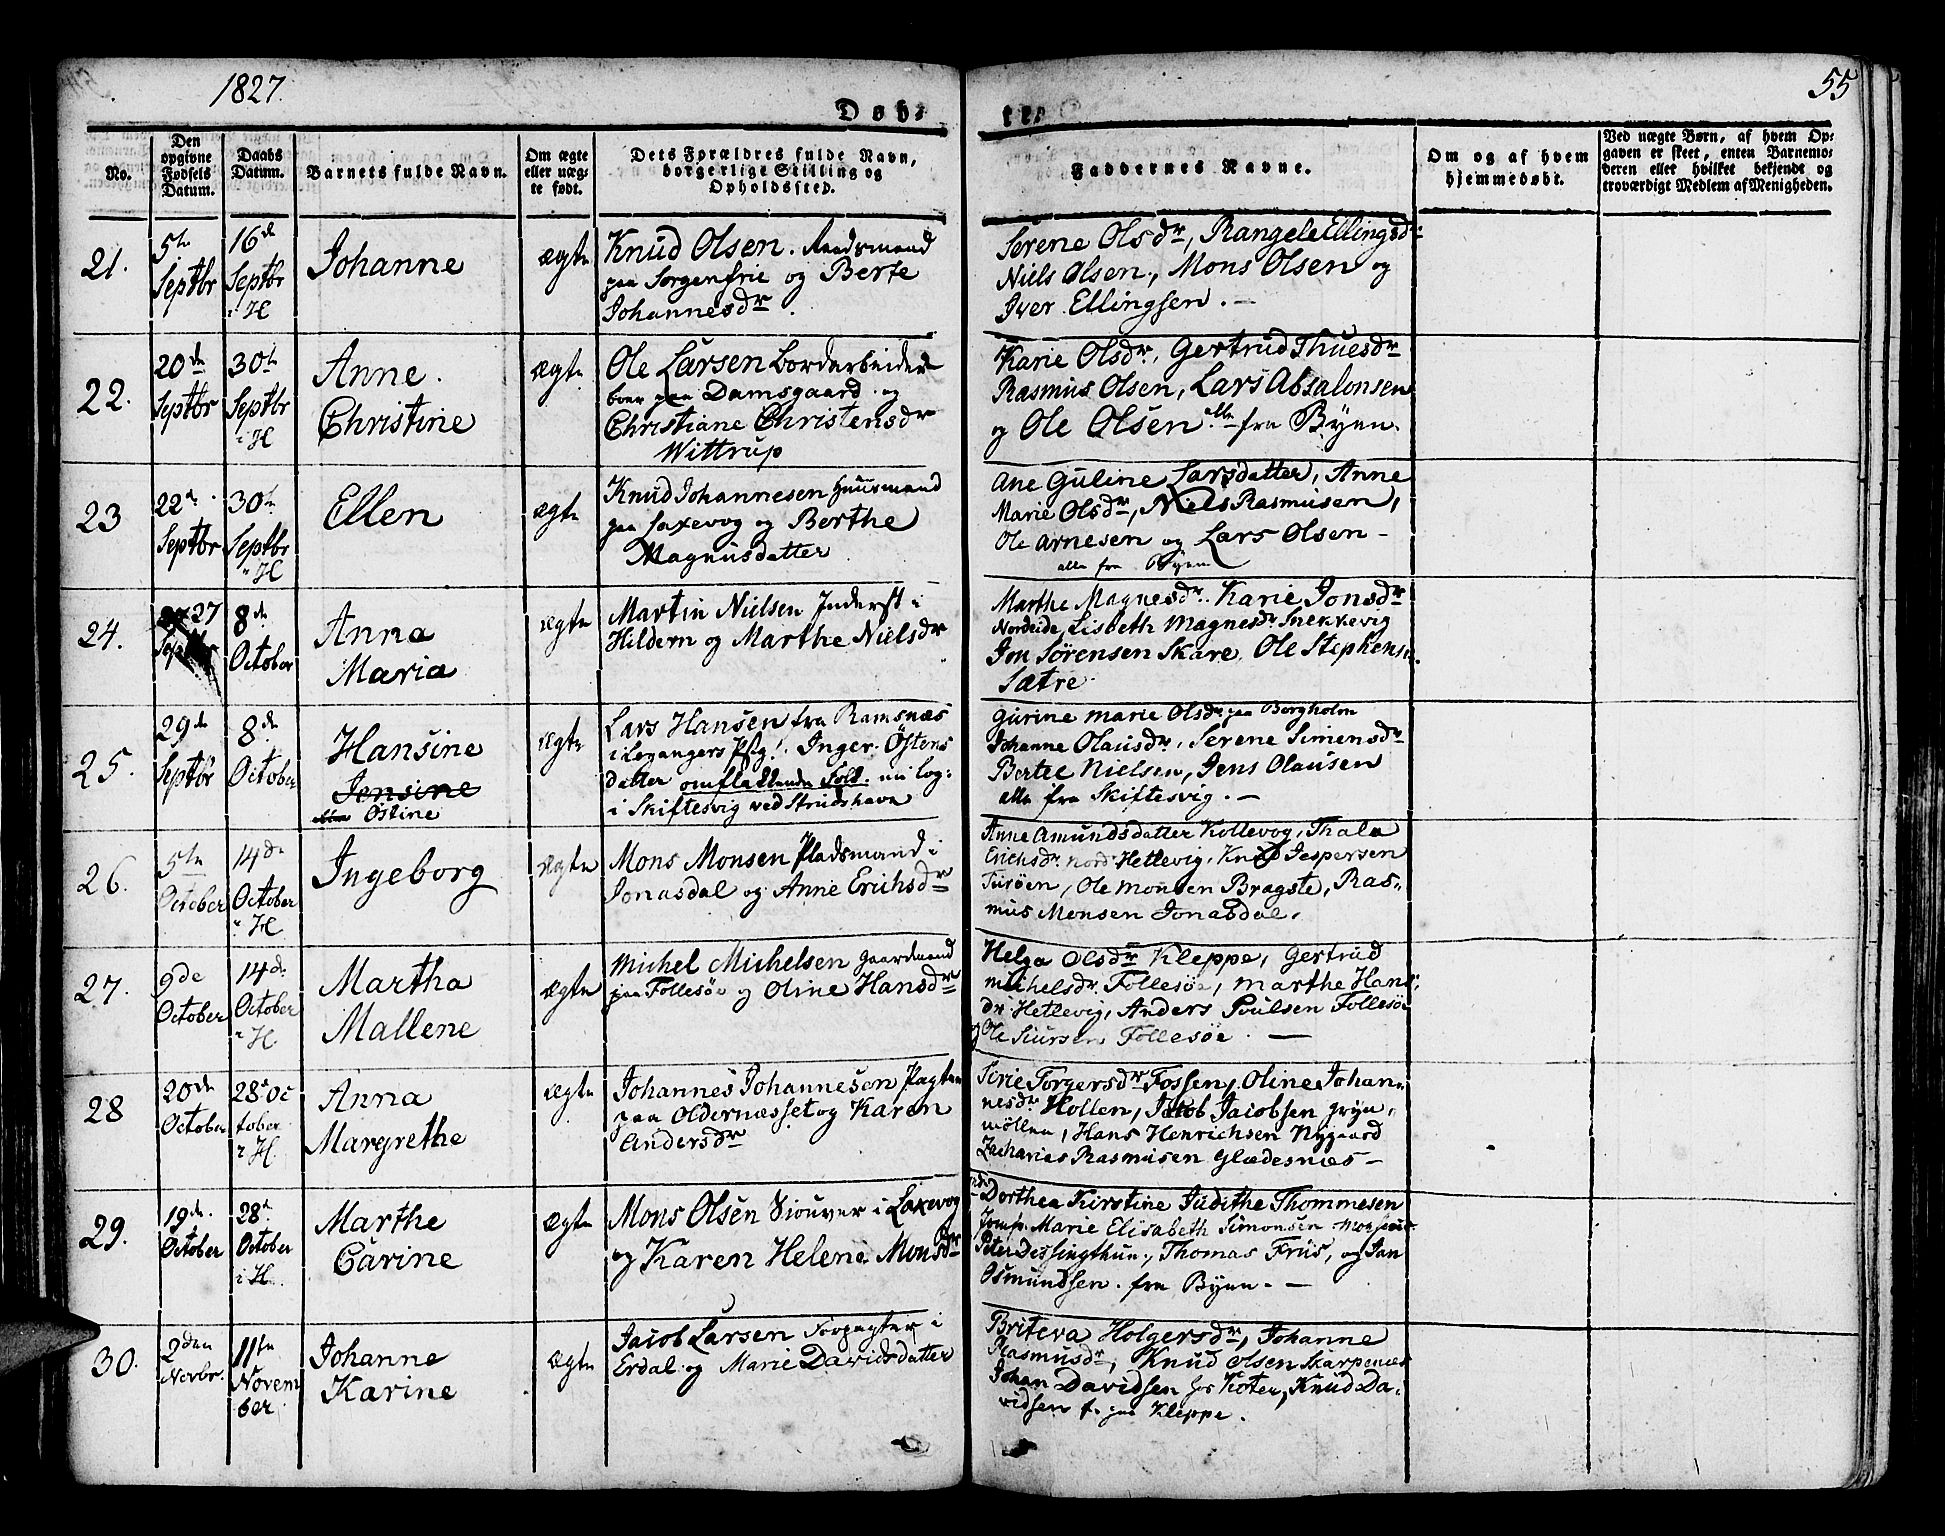 1827.
55
Døb-
te.
No.
Den
opgivne
Fødsels
Datum.
Daabs
Datum.
Barnets fulde Navn.
Om ægte
eller uæg-
te født.
Dets Forældres fulde Navn,
borgerlige Stilling og
Opholdssted.
Faddernes Navne.
Om og af hvem
hjemmedøbt.
Ved uægte Børn, af hvem Op-
gaven er skeet, enten Barnemo-
deren eller hvilket bekjendt og
troværdigt Medlem af Menigheden.
21.
5te
Septbr
16de
Septbr
i H
Johanne
ægte
Knud Olsen. Raadsmand
paa Sorgenfrie og Berte
Johannesdr.
Serene Olsdr, Rangele Ellingsdr
Niels Olsen, Mons Olsen og
Iver Ellingsen. —
22.
20de
Septbr
30te
Septbr
i H
Anne
Christine
ægte
Ole Larsen Bordarbeider
boer paa Damsgaard og
Christiane Christensdr
Wittrup
Karie Olsdr, Gertrud Thuesdr
Rasmus Olsen, Lars Absalonsen
og Ole Olsen alle fra Byen.
23
22de
Septbr
30te
Septbr
i H
Ellen
ægte
Knud Johannesen Huusmand
paa Laxevog og Berthe
Magnusdatter
Ane Guline Larsdatter, Anne
Marie Olsdr, Niels Rasmusen,
Ole Arnesen og Lars Olsen -
alle fra Byen
24.
27
Septbr
8de
October
Anna
Maria
ægte
Martin Nielsen Inderst i
Hildern og Marthe Nielsdr
Marthe Magnesdr. Karie Jonsdr
Nordeide, Lisbeth Magnesdr Snekkevig
Jon Sörensen Skare, Ole Stephensen
Sætre
25.
29de
Septbr
8de
October
Hansine
Jensine
Östine
ægte
Lars Hansen fra Ramsnæs
i Legangers Pstg! Inger Östens
datter omflakkende Folk. nu log:
i Skiftesvig ved Strudshavn
Gurine Marie Olsdr paa Borgholm
Johanne Olausdr, Serene Simensdr
Bertel Nielsen, Jens Olausen
alle fra Skiftesvig. —
26.
5te
October
14de
October
i H
Ingeborg
ægte
Mons Monsen Pladsmand i
Jonasdal og Anne Erichsdr
Anne Amundsdatter Kollevog, Thala
Erichsdr. Nord Hetlevig, Knud Jespersen
Turöen, Ole Monsen Bragste, Ras-
mus Monsen Jonasdal.
27.
9de
October
14de
October
i H.
Martha
Mallene
ægte
Michel Michelsen Gaardmand
paa Follesöe og Oline Hansdr
Helga Olsdr Kleppe, Gertrud
Michelsdr. Follesöe, Marthe Hans
dr. Hetlevig, Anders Poulsen Follesöe
og Ole Siursen Follesöe. —
28
20de
October
28de Oc
tober
i H.
Anna
Margrethe
ægte
Johannes Johannesen Pagter
paa Oldernæsset og Karen
Andersdr
Sirie Torgersdr Fossen, Oline Johan-
nesdr Hollen, Jacob Jacobsen Gryn-
möllen, Hans Henrichsen Nygaard
Zacharias Rasmusen Glædesnæs —
29.
19de
October
28de
October
i H.
Marthe
Carine
ægte
Mons Olsen Siouver i Laxevog
og Karen Helene Monsdr
Dorthea Kirstine Judithe Thommesen
Jomfr. Marie Elisabeth Simonsen
Peter Dessingthun, Thomas Friis, og Jan
Osmundsen. fra Byen. —
30.
2den
Novbr.
11te
Novem
ber.
Johanne
Karine
ægte
Jacob Larsen Forpagter i
Erdal og Marie Davidsdatter
Briteva Holgersdr, Johanne
Rasmusdr, Knud Olsen Skarpenæs
Johan Davidsen hos Koter, Knud Da-
vidsen f. paa Kleppe.